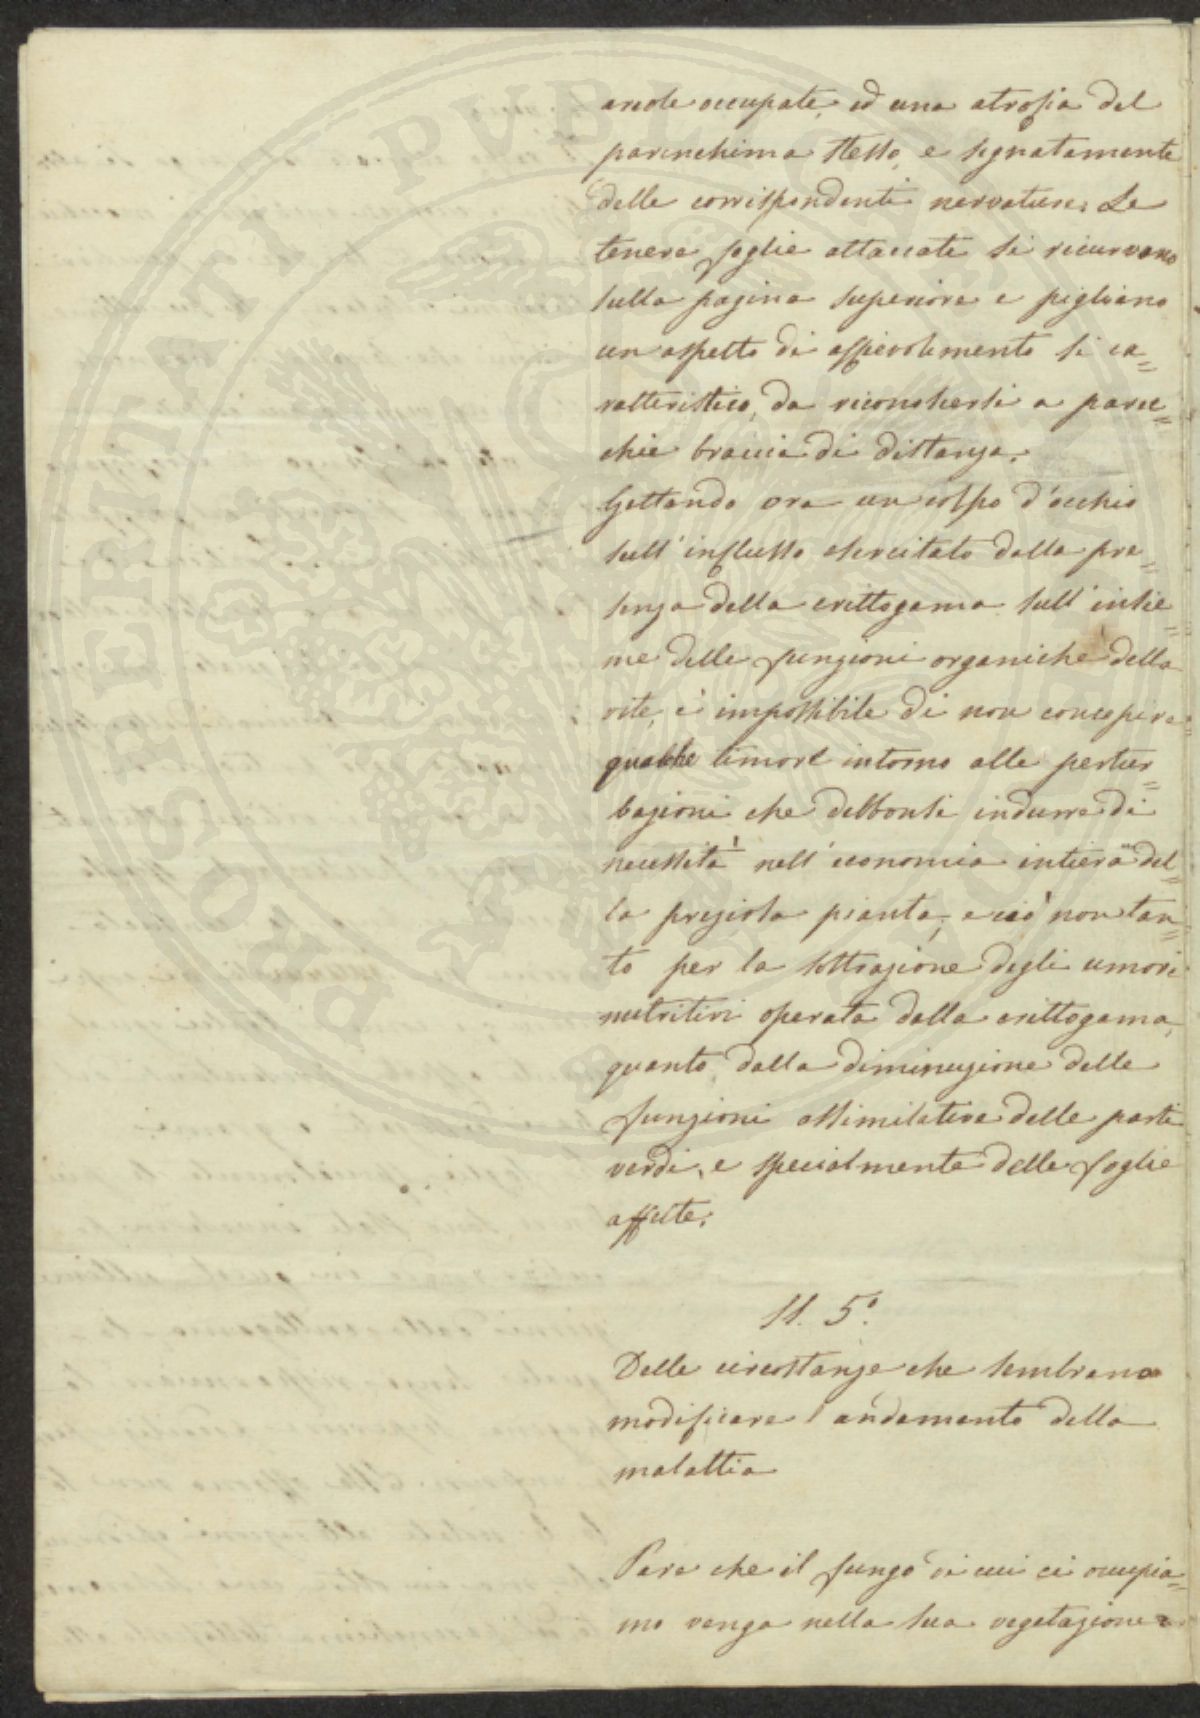 areole occupate, ed una atrofia del
parenchima stesso, e segnatamente
delle corrispondenti nervature. Le
tenere foglie attaccate si ricurvano
sulla pagina superiore e pigliano
un aspetto di affievolimento sì ca=
ratteristico, da riconoscersi a parec=
chie braccia di distanza.
Gettando ora un colpo d'occhio
sull'influsso esercitato dalla pre=
senza della crittogama sull'insie=
me delle funzioni organiche della
vite, è impossibile di non concepire
qualche timore intorno alle pertur=
bazioni che debbonsi indurre di
necessità nell'economia intiera del=
la preziosa pianta, e ciò non tan=
to per la sottrazione degli umori
nutritivi operata dalla crittogama,
quanto dalla diminuzione delle
funzioni assimilative delle parti
verdi, e specialmente delle foglie
affette.
§§. 5.°
Delle circostanze che sembrano
modificare l'andamento della
malattia
Pare che il fungo di cui ci occupia=
mo venga nella sua vegetazione
PROSPERITATI PVBLICAE